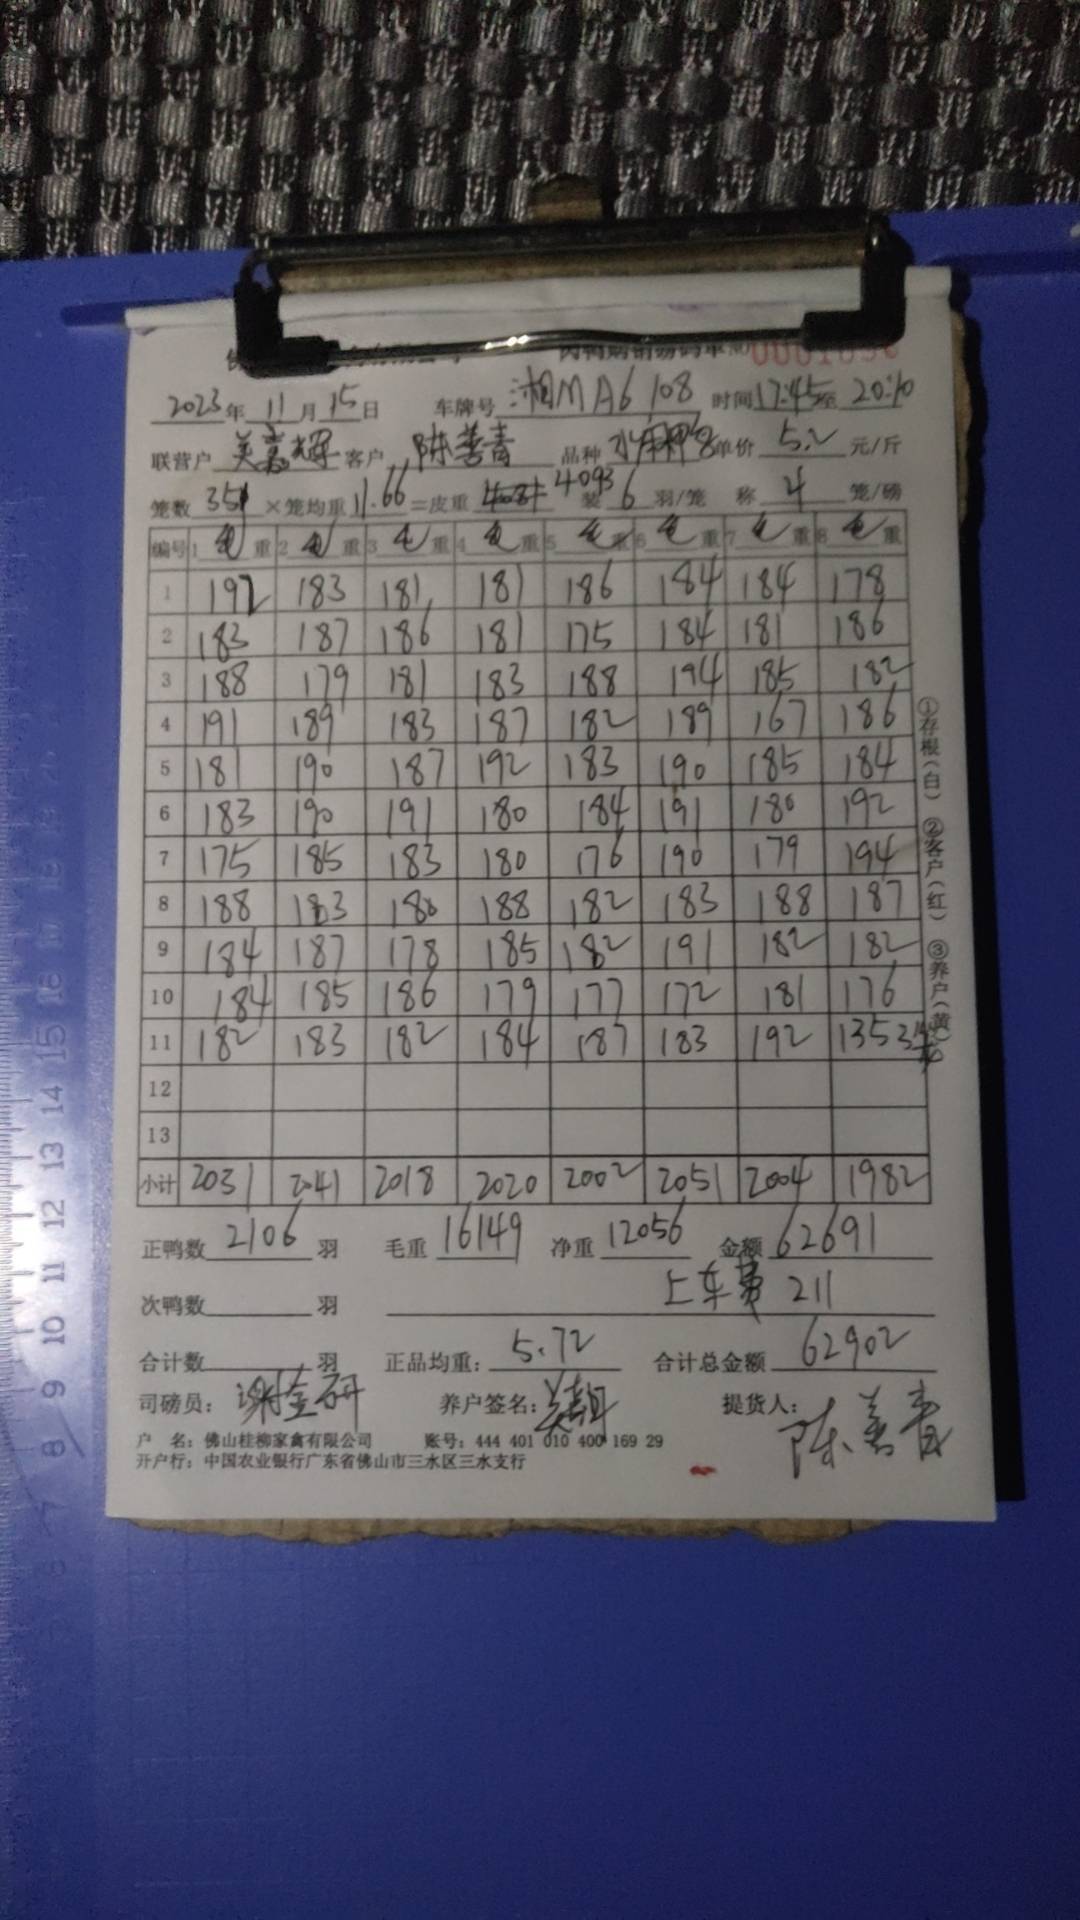 2023年11月15日 车牌号 湘MA6108 时间17:45至20:10
联营户 客户 陈善青 品种 单价 5.2 元/斤
笼数 351 ×笼均重 11.66 =皮重 4093 装 6 羽/笼 称 4 笼/磅
编号 1 毛重 2 毛重 3 毛重 4 毛重 5 毛重 6 毛重 7 毛重 8 毛重
1 192 183 181 181 186 184 184 178
2 183 187 186 181 175 184 181 186
3 188 179 181 183 188 194 185 182
4 191 189 183 187 182 189 167 186
5 181 190 187 192 183 190 185 184
6 183 190 191 180 184 191 180 192
7 175 185 183 180 176 190 179 194
8 188 183 180 188 182 183 188 187
9 184 187 178 185 182 191 182 182
10 184 185 186 179 177 172 181 176
11 182 183 182 184 187 183 192 135 3
12
13
小计 2031 2041 2018 2020 2002 2051 2004 1982
①存根(白) ②客户(红) ③养户(黄)
正鸭数 2106 羽 毛重 16149 净重 12056 金额 62691
次鸭数 羽 上车费 211
合计数 羽 正品均重: 5.72 合计总金额 62902
司磅员: 谢金研 养户签名: 提货人: 陈善青
户 名: 佛山桂柳家禽有限公司 账号: 444 401 010 400 169 29
开户行: 中国农业银行广东省佛山市三水区三水支行
15 14 13 12 11 10 9 8